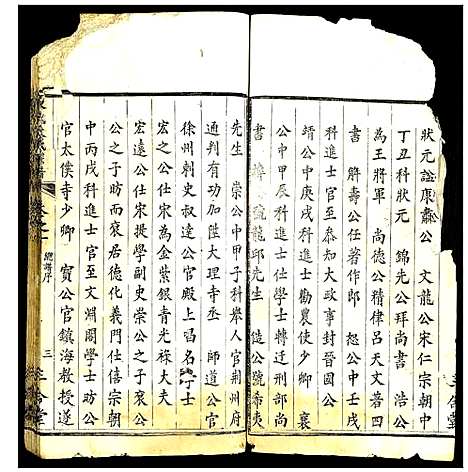 狀元諡康肅公 文龍公宋仁宗朝中
丁丑科狀元 錦先公拜尚書 浩公
為王將軍 尚德公精律呂天文著四
書 解壽公任著作郎 恕公中壬戌
科進士官至叅知大政事封晉國公
靖公中庚戌科進士勸農使少卿 襄
公中甲辰科進士仕學士轉遷刑部尚
書 號龍邱先生 造公號希夷
先生 崇公中甲子科舉人官荊州府
通判有功加陞大理寺丞 師道公官
徐州刺史叔達公官殿上昌名 士
宏之公仕宋為金紫銀青光祿大夫
宏遠公仕宋授學副史崇公之子衮公
公之子昉而衮居德化義門仕僖宗朝
中丙戌科進士官至文淵閣學士昉公
官太僕寺少卿 賓公官鎮海教授遂
卷之一 總譜序 三